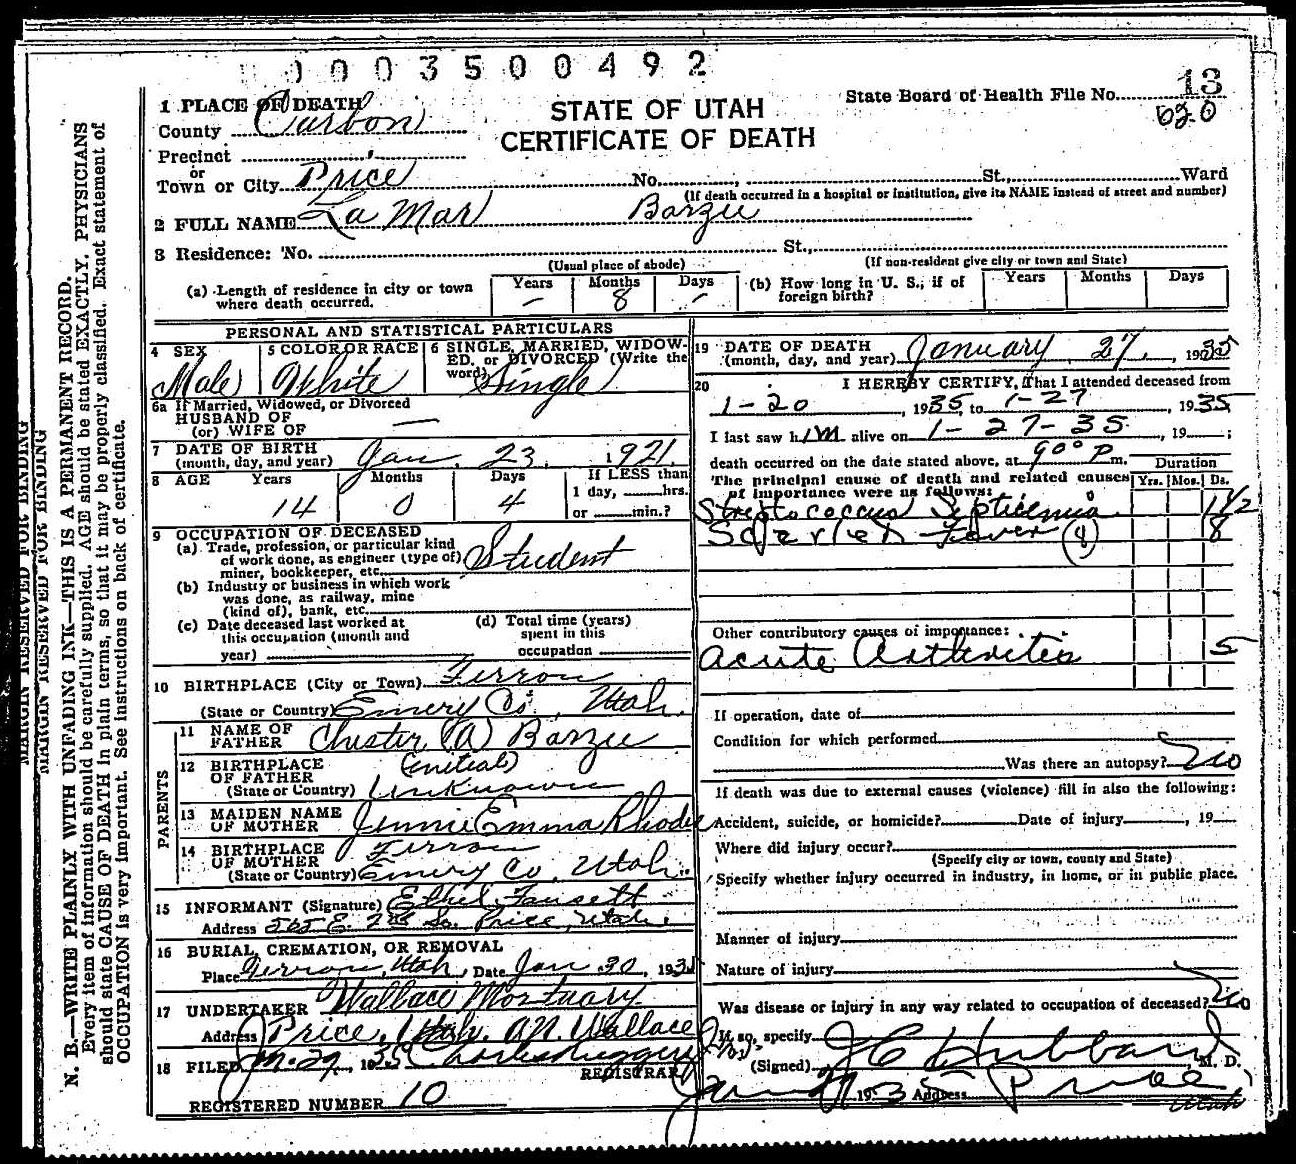 0003500492
1 PLACE OF DEATH
County Carbon
STATE OF UTAH
CERTIFICATE OF DEATH
State Board of Health File No. 13
620
Precinct
or
Town or City Price No. St., Ward
(If death occurred in a hospital or institution, give its NAME instead of street and number)
2 FULL NAME La Mar Barzee
3 Residence: No. St.,
(Usual place of abode) (If non-resident give city or town and State)
(a) Length of residence in city or town where death occurred. Years — Months 8 Days —
(b) How long in U. S., if of foreign birth? Years Months Days
PERSONAL AND STATISTICAL PARTICULARS
4 SEX Male
5 COLOR OR RACE White
6 SINGLE, MARRIED, WIDOWED, or DIVORCED (Write the word) Single
6a If Married, Widowed, or Divorced
HUSBAND OF
(or) WIFE OF —
7 DATE OF BIRTH
(month, day, and year) Jan. 23 1921
8 AGE Years 14 Months 0 Days 4
If LESS than
1 day, hrs.
or min.?
9 OCCUPATION OF DECEASED
(a) Trade, profession, or particular kind
of work done, as engineer (type of)
miner, bookkeeper, etc. Student
(b) Industry or business in which work
was done, as railway, mine
(kind of), bank, etc.
(c) Date deceased last worked at
this occupation (month and
year)
(d) Total time (years)
spent in this
occupation
10 BIRTHPLACE (City or Town) Ferron
(State or Country) Emery Co., Utah.
PARENTS
11 NAME OF
FATHER Chester (A) Barzee
(initial)
12 BIRTHPLACE
OF FATHER
(State or Country) Unknown
13 MAIDEN NAME
OF MOTHER Jennie Emma Rhodes
14 BIRTHPLACE
OF MOTHER Ferron
(State or Country) Emery Co, Utah.
15 INFORMANT (Signature) Ethel Fausett
Address 505 E. 2nd So. Price, Utah.
16 BURIAL, CREMATION, OR REMOVAL
Place Ferron, Utah, Date Jan 30, 1935
17 UNDERTAKER Wallace Mortuary
Address Price, Utah. A.N. Wallace
18 FILED Jan. 29, 1935
REGISTRAR
REGISTERED NUMBER 10
19 DATE OF DEATH
(month, day, and year) January 27, 1935
20 I HEREBY CERTIFY, That I attended deceased from
1-20, 1935, to 1-27, 1935
I last saw him alive on 1-27-35, 19 ;
death occurred on the date stated above, at 9 00 P m.
The principal cause of death and related causes
of importance were as follows:
Duration
Yrs. Mos. Ds.
Streptococcus Septicemia 1 1/2
Scarlet Fever (8) 8
Other contributory causes of importance:
Acute Arthritis 5
If operation, date of
Condition for which performed
Was there an autopsy? no
If death was due to external causes (violence) fill in also the following:
Accident, suicide, or homicide? Date of injury , 19
Where did injury occur?
(Specify city or town, county and State)
Specify whether injury occurred in industry, in home, or in public place.
Manner of injury
Nature of injury
Was disease or injury in any way related to occupation of deceased? no
If so, specify
(Signed) J C Hubbard, M. D.
1935 Address Price
Utah
MARGIN RESERVED FOR BINDING
MARGIN RESERVED FOR BINDING
N. B.—WRITE PLAINLY WITH UNFADING INK—THIS IS A PERMANENT RECORD.
Every item of information should be carefully supplied. AGE should be stated EXACTLY. PHYSICIANS
should state CAUSE OF DEATH in plain terms, so that it may be properly classified. Exact statement of
OCCUPATION is very important. See instructions on back of certificate.